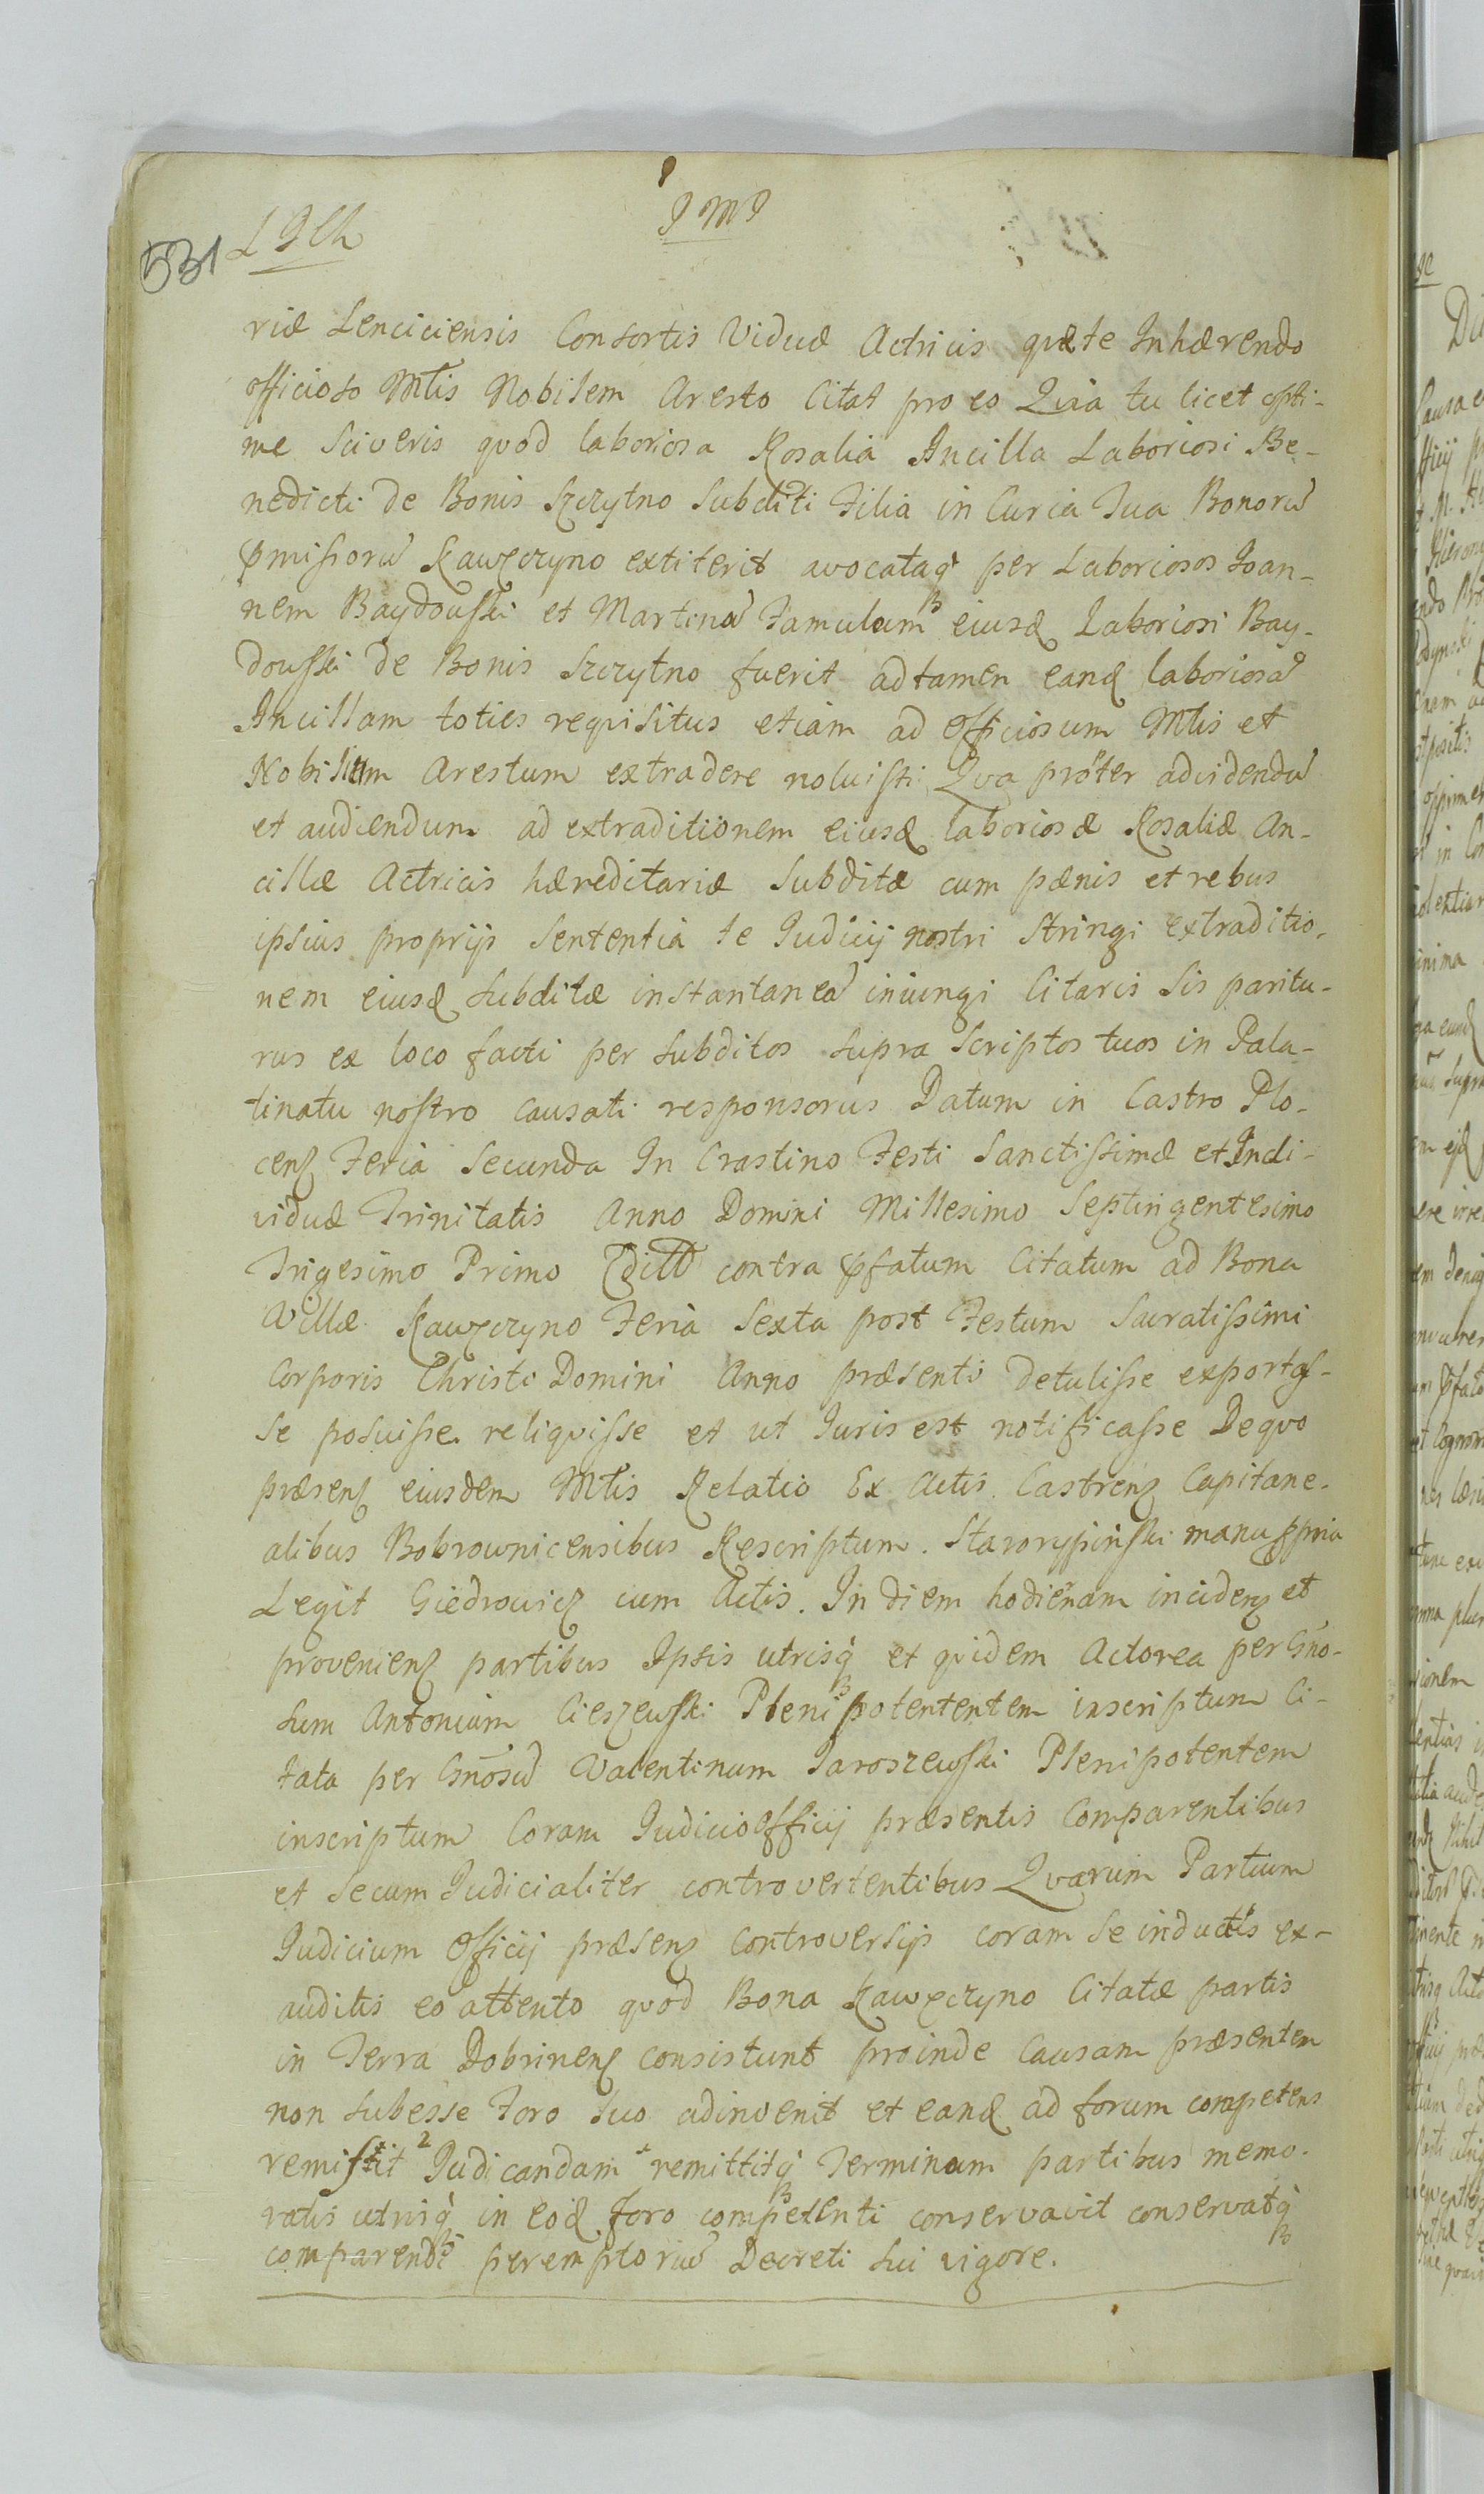 531 L J Ch
J M J
riæ Lenciciensis Consortis Viduæ Actricis quæ te Inhærendo
officioso Mtis Nobilem Aresto Citat pro eo Quia tu licet opti-
me sciveris quod laboriosa Rosalia Ancilla Laboriosi Be-
nedicti de Bonis Szczytno Subditi Filia in Curia Tua Bonorũ
p̄missorũ Kawęczyno extiterit avocataq̀ per Laboriosos Joan-
nem Baydouski et Martinũ Famulum eiusd Laboriosi Bay-
douski de Bonis Szczytno fuerit adtamen eand laboriosã
Ancillam toties requisitus etiam ad Officiosum Mtis et
Nobilium Arestum extradere noluisti Qua próter advidendũ
et audiendum ad extraditionem eiusd laboriosæ Rosaliæ An-
cillæ Actricis hæreditariæ Subditæ cum pænis et rebus
ipsius proprijs Sententia te Judicij nostri Stringi extraditio-
nem eiusd Subditæ instantaneã iniungi Citaris Sis paritu-
rus ex loco facti per Subditos Supra Scriptos tuos in Pala-
tinatu nostro causati responsorus Datum in Castro Plo-
cenʒ Feria Secunda In Crastino Festi Sanctissimæ et Indi-
viduæ Trinitatis Anno Domini Millesimo Septingentesimo
Trigesimo Primo contra p̄fatum Citatum ad Bona
Villæ Kawęczyno Feria Sexta post Festum Sacratissimi
Corporis Christi Domini Anno præsenti detulisse exportas-
se posuisse reliquisse et ut Juris est notificasse De quo
præsenʒ eiusdem Mtis Relatio Ex Actis Castrenʒ Capitane-
alibus Bobrownicensibus Rescriptum. Starorypinski manu ppria
Legit Giedrowicʒ cum Actis. In diem hodiernam incidenʒ et
provenienʒ partibus Ipsis utrisq̀ et quidem Actorea per Gño-
sum Antonium Cieszewski Plenipotententem inscriptum Ci-
tata per Gñosũ Valentinum Jaroszewski Plenipotentem
inscriptum Coram Judicio Officij præsentis Comparentibus
et Secum Judicialiter controvertentibus Quarum Partium
Judicium Officij præsenʒ Controversijs coram Se inductis ex-
auditis eo attento quod Bona Kawęczyno Citatæ partis
in Terra Dobrinenʒ consistunt proinde Causam præsentem
non Subesse Foro Suo adinvenit et eand ad forum competens
remissit 2 Judicandam remittitq̀ Terminum partibus memo-
ratis utrisq̀ in eod Foro competenti conservavit conservatq̀
comparendi peremptoriũ Decreti Sui vigore.